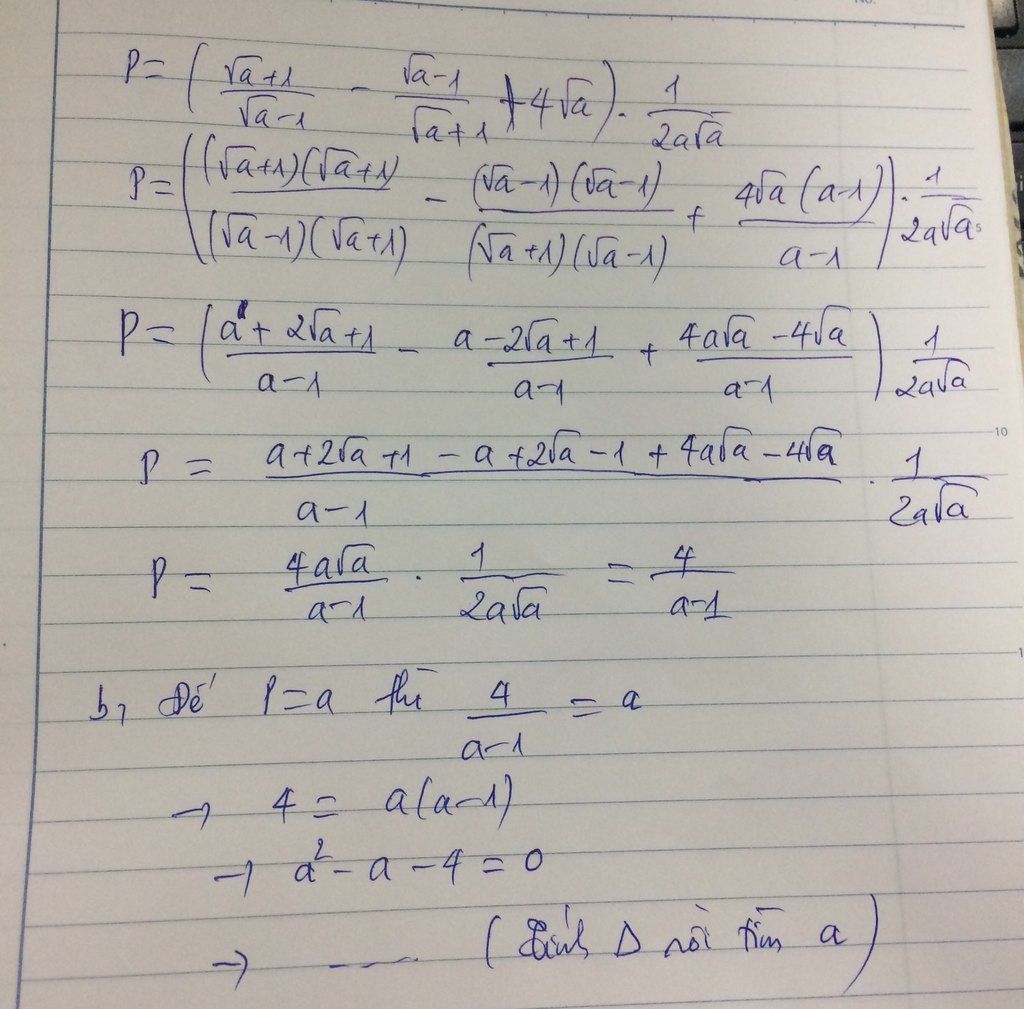 P = ( (√a+1)/(√a-1) - (√a-1)/(√a+1) + 4√a ) . 1/(2a√a)
P = ( ((√a+1)(√a+1))/((√a-1)(√a+1)) - ((√a-1)(√a-1))/((√a+1)(√a-1)) + (4√a(a-1))/(a-1) ) . 1/(2a√a)
P = ( (a+2√a+1)/(a-1) - (a-2√a+1)/(a-1) + (4a√a-4√a)/(a-1) ) 1/(2a√a)
10
P = (a+2√a+1-a+2√a-1+4a√a-4√a)/(a-1) . 1/(2a√a)
P = (4a√a)/(a-1) . 1/(2a√a) = 4/(a-1)
b, Để P=a thì 4/(a-1) = a
→ 4 = a(a-1)
→ a² - a - 4 = 0
→ .... (tính Δ rồi tìm a)